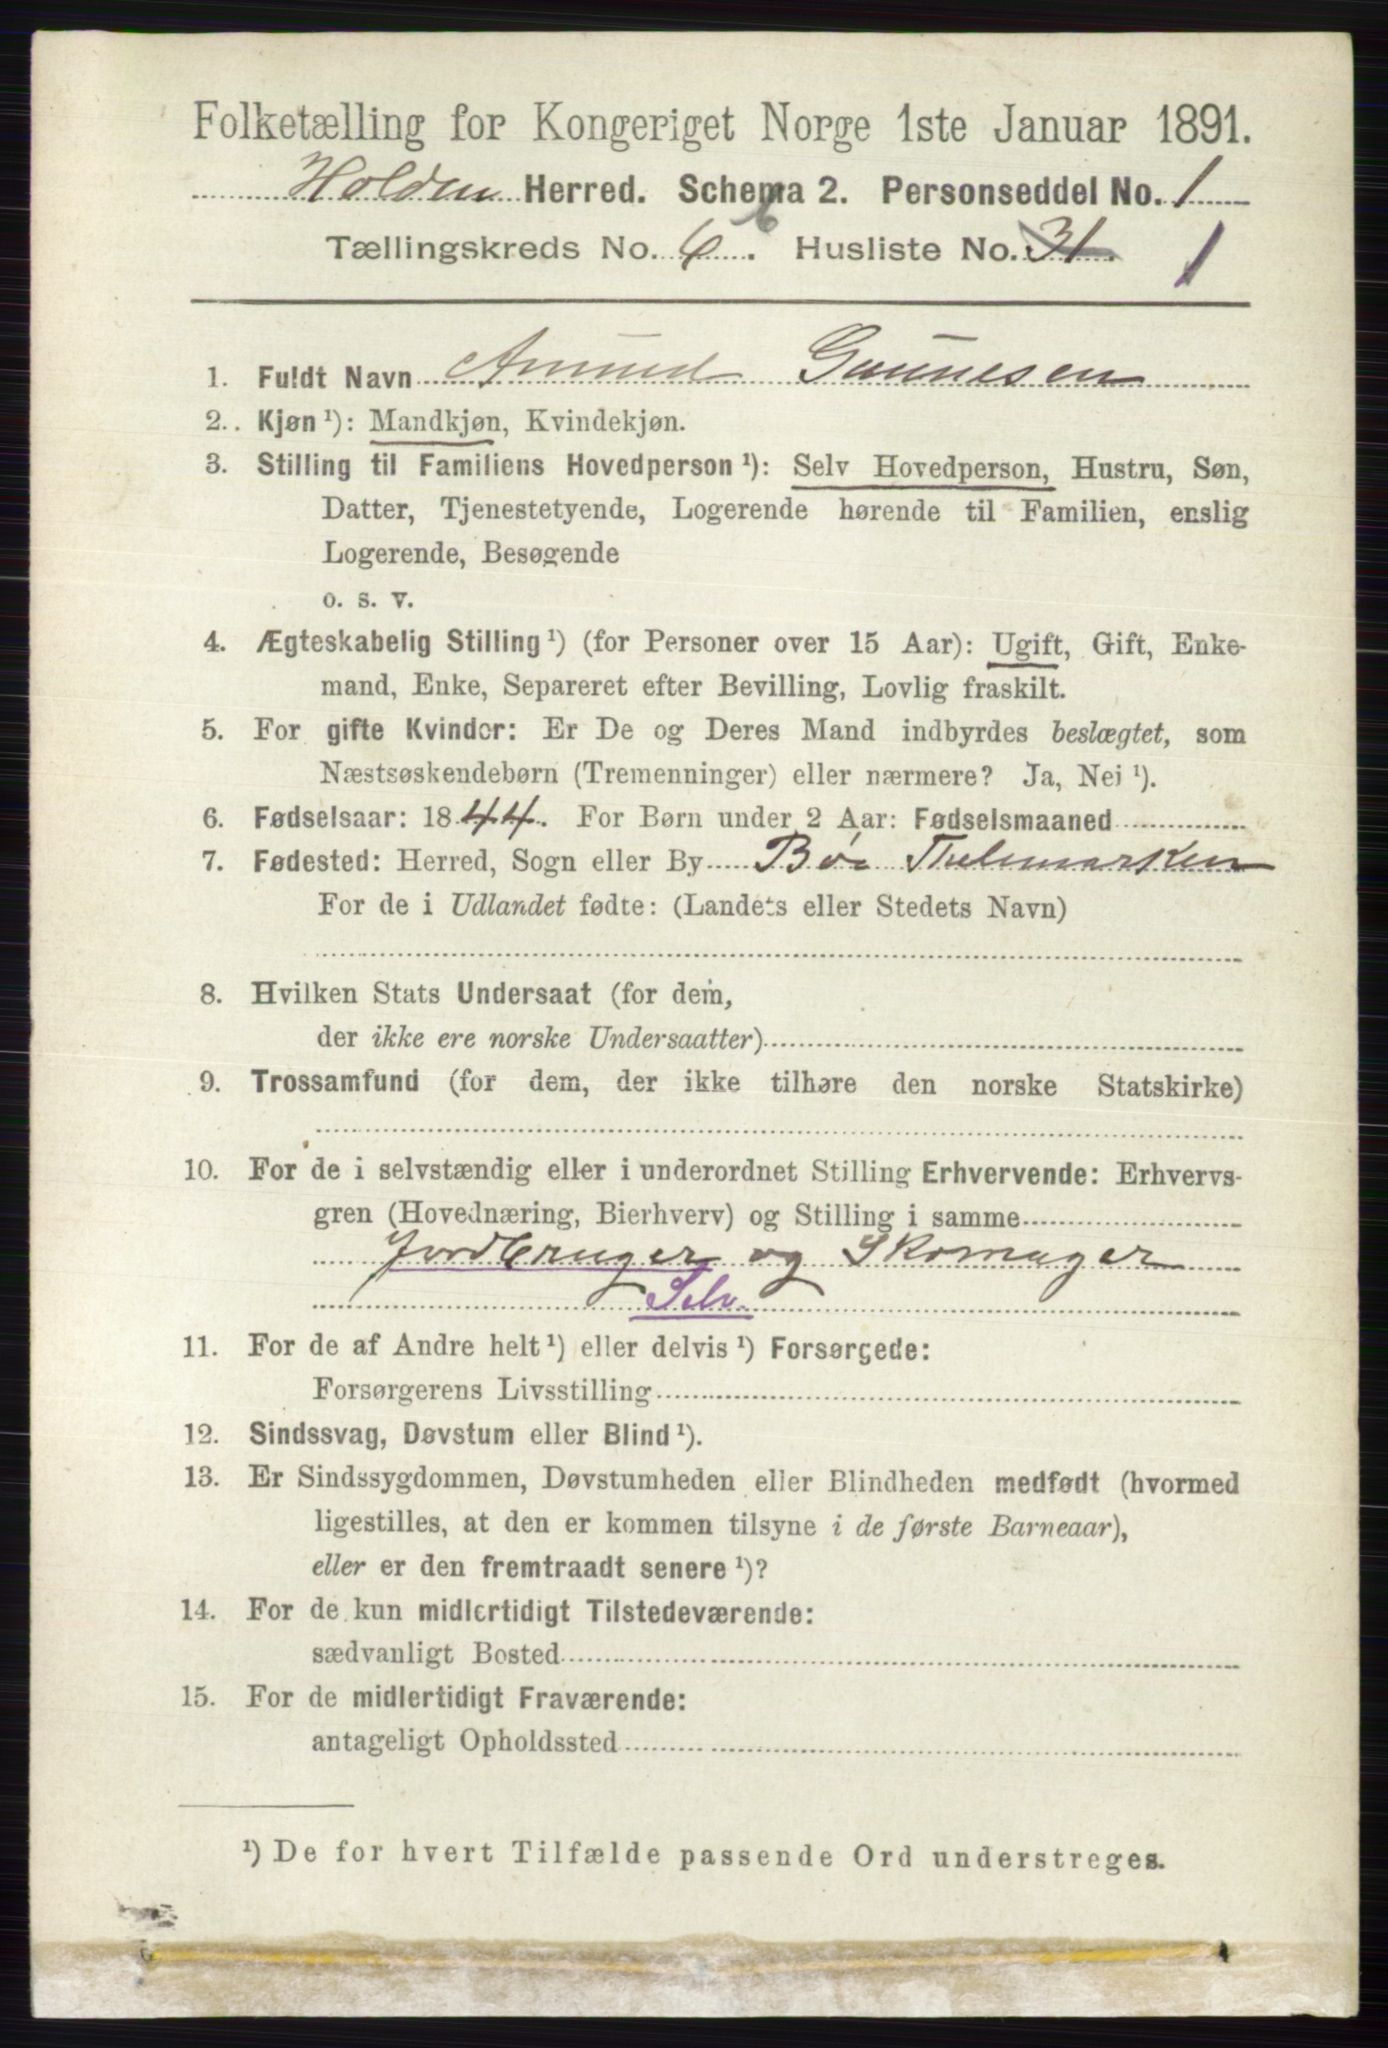 Folketælling for Kongeriget Norge 1ste Januar 1891.
Holden Herred. Schema 2. Personseddel No. 1
6
Tællingskreds No. 6. Husliste No. 31. 1
1. Fuldt Navn Amund Gunnesen
2. Kjøn ¹): Mandkjøn, Kvindekjøn.
3. Stilling til Familiens Hovedperson ¹): Selv Hovedperson, Hustru, Søn,
Datter, Tjenestetyende, Logerende hørende til Familien, enslig
Logerende, Besøgende
o. s. v.
4. Ægteskabelig Stilling ¹) (for Personer over 15 Aar): Ugift, Gift, Enke-
mand, Enke, Separeret efter Bevilling, Lovlig fraskilt.
5. For gifte Kvinder: Er De og Deres Mand indbyrdes beslægtet, som
Næstsøskendebørn (Tremenninger) eller nærmere? Ja, Nei ¹).
6. Fødselsaar: 1844. For Børn under 2 Aar: Fødselsmaaned
7. Fødested: Herred, Sogn eller By Bø Thelemarken
For de i Udlandet fødte: (Landets eller Stedets Navn)
8. Hvilken Stats Undersaat (for dem,
der ikke ere norske Undersaatter)
9. Trossamfund (for dem, der ikke tilhøre den norske Statskirke)
10. For de i selvstændig eller i underordnet Stilling Erhvervende: Erhvervs-
gren (Hovednæring, Bierhverv) og Stilling i samme
Jordbruger og Skomager
Selv.
11. For de af Andre helt ¹) eller delvis ¹) Forsørgede:
Forsørgerens Livsstilling
12. Sindssvag, Døvstum eller Blind ¹).
13. Er Sindssygdommen, Døvstumheden eller Blindheden medfødt (hvormed
ligestilles, at den er kommen tilsyne i de første Barneaar),
eller er den fremtraadt senere ¹)?
14. For de kun midlertidigt Tilstedeværende:
sædvanligt Bosted
15. For de midlertidigt Fraværende:
antageligt Opholdssted
¹) De for hvert Tilfælde passende Ord understreges.